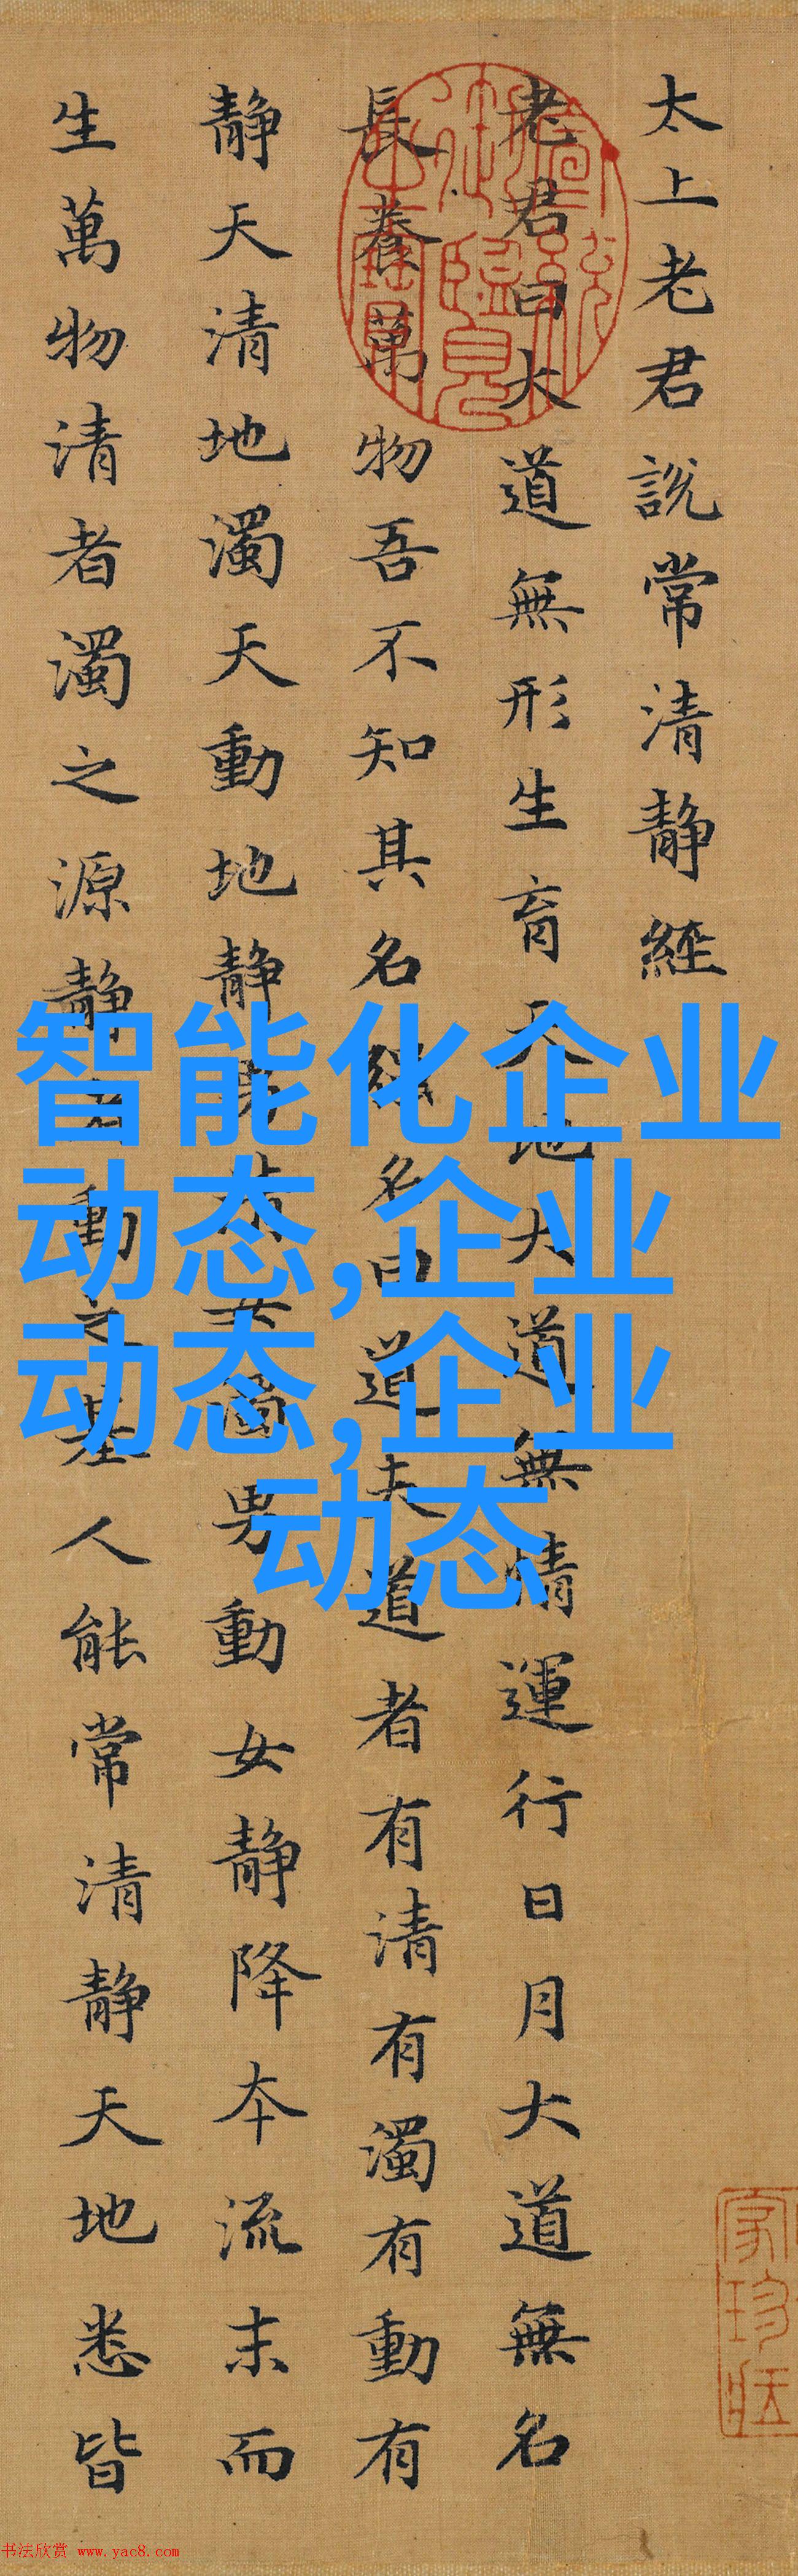 太上老君說常清靜經
老君曰大道無形生育天地大道無情運行日月大道無名
長養萬物吾不知其名強名曰道夫道者有清有濁有動有
靜天清地濁天動地靜男清女濁男動女靜降本流末而
生萬物清者濁之源靜者動之基人能常清靜天地悉皆
智能化企业
动态,企业
动态,企业
动态
书法欣赏 www.yac8.com